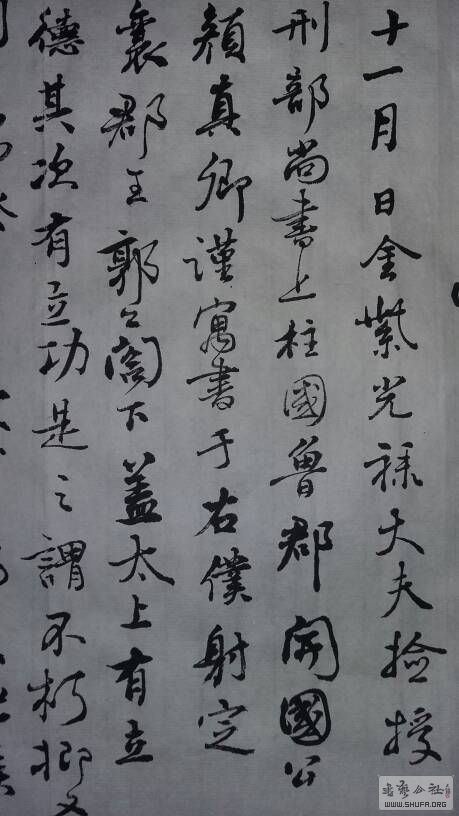 十一月日金紫光禄大夫捡授
刑部尚書上柱國魯郡開國公
顔真卿謹寓書于右僕射定
襄郡王郭公閣下蓋太上有立
德其次有立功是之謂不朽抑又
WWW.SHUFA.ORG